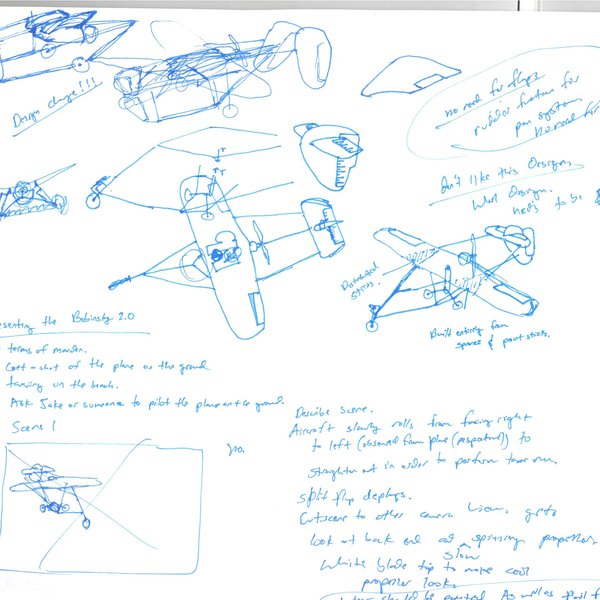 Design change!!!
no need for flaps
rudder function for
system.
No need for
Don't like this Design,
Wheel Design.
needs to be
Potential
sticks.
Built entirely from
spruce & paint sticks.
esenting the Bobinsky 2.0
terms of
Get a shot of the plane on the ground
taxiing on the beach.
Ask Jake or someone to pilot the plane on the ground.
Scene 1
yo.
Describe scene.
Aircraft slowly rolls from facing right
to left (observed from plane (perspective)) to
straighten out in order to perform
split flap deploys.
Cutscene to other camera view, gets
look at back end and slow spinning propeller,
White blade tip to make cool
propeller look.
should be painted As well as